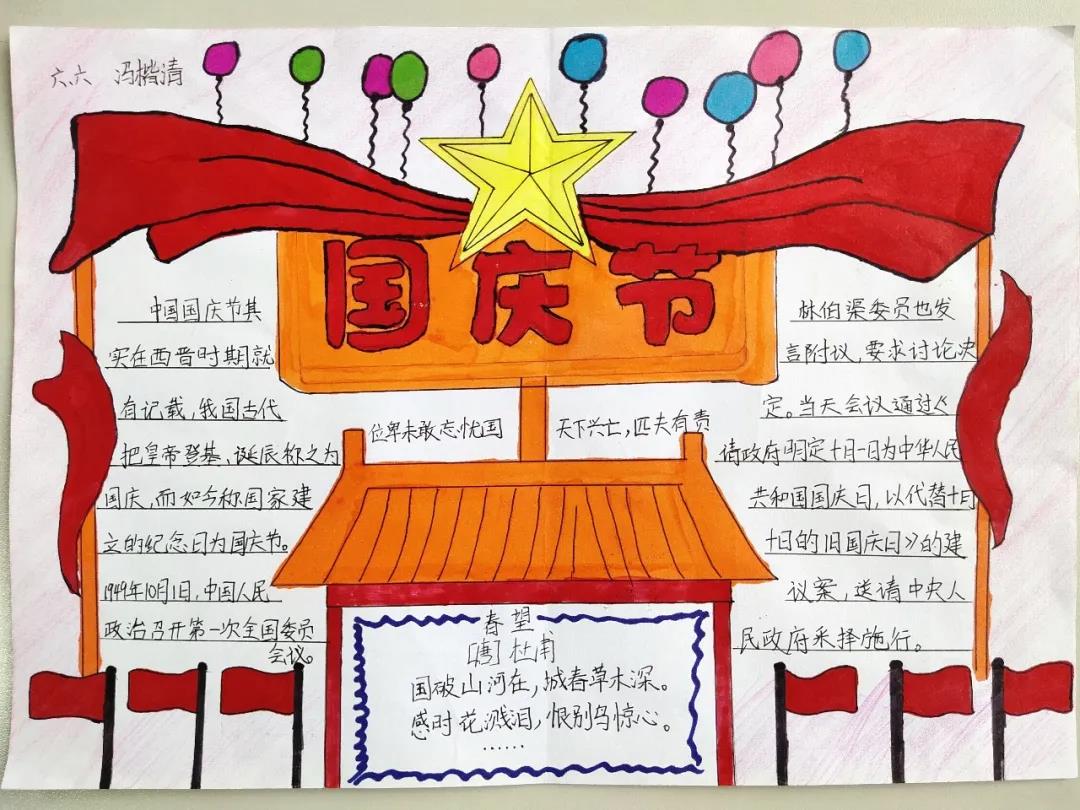 六、六 冯楷清
国庆节
中国国庆节其
实在西晋时期就
有记载，我国古代
把皇帝登基、诞辰称之为
国庆，而如今称国家建
立的纪念日为国庆节。
1949年10月1日，中国人民
政治召开第一次全国委员
会议。
位卑未敢忘忧国
天下兴亡，匹夫有责
春望
[唐] 杜甫
国破山河在，城春草木深。
感时花溅泪，恨别鸟惊心。
……
林伯渠委员也发
言附议，要求讨论决
定。当天会议通过《
请政府明定十月一日为中华人民
共和国国庆日，以代替十月
十日的旧国庆日》的建
议案，送请中央人
民政府采择施行。